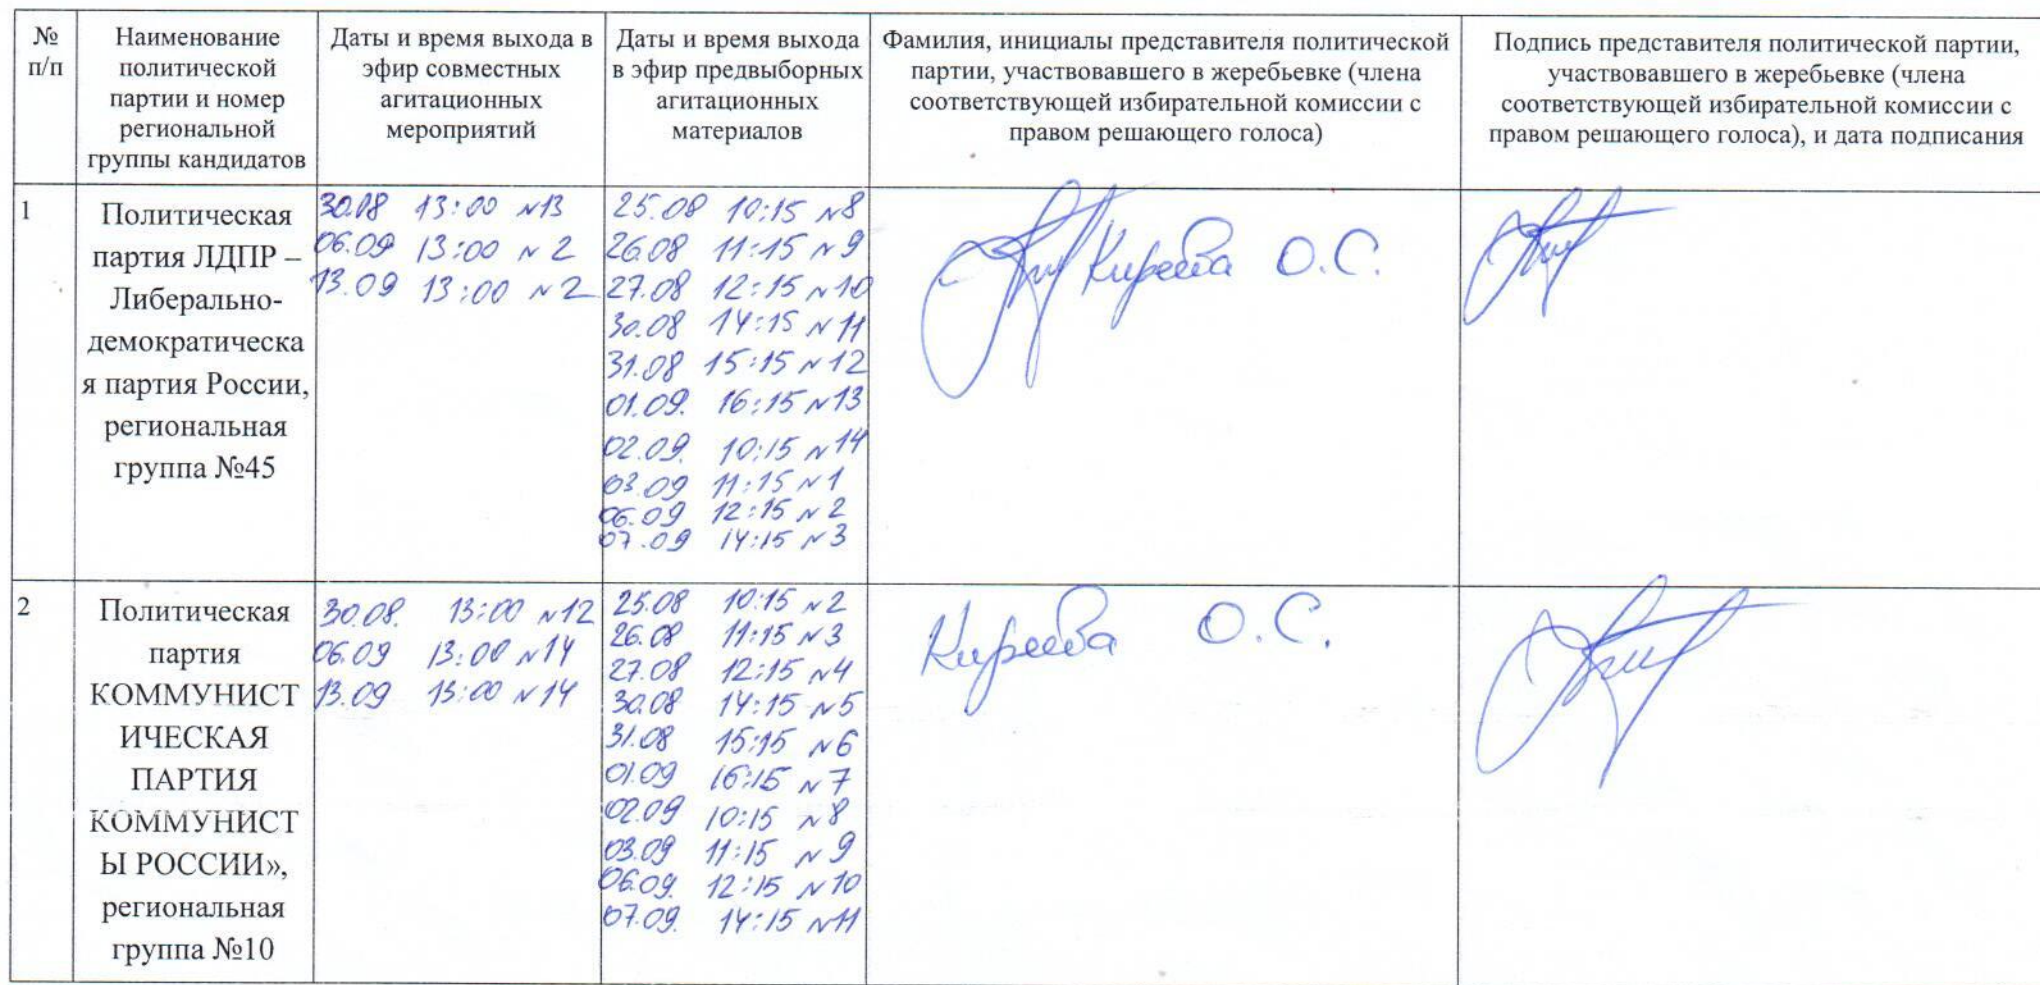 №
п/п
Наименование
политической
партии и номер
региональной
группы кандидатов
Даты и время выхода в
эфир совместных
агитационных
мероприятий
Даты и время выхода
в эфир предвыборных
агитационных
материалов
Фамилия, инициалы представителя политической
партии, участвовавшего в жеребьевке (члена
соответствующей избирательной комиссии с
правом решающего голоса)
Подпись представителя политической партии,
участвовавшего в жеребьевке (члена
соответствующей избирательной комиссии с
правом решающего голоса), и дата подписания
1
Политическая
партия ЛДПР –
Либерально-
демократическа
я партия России,
региональная
группа №45
30.08 13:00 №13
06.09 13:00 №2
13.09 13:00 №2
25.08 10:15 №8
26.08 11:15 №9
27.08 12:15 №10
30.08 14:15 №11
31.08 15:15 №12
01.09. 16:15 №13
02.09. 10:15 №14
03.09 11:15 №1
06.09 12:15 №2
07.09 14:15 №3
Киреева О.С.
2
Политическая
партия
КОММУНИСТ
ИЧЕСКАЯ
ПАРТИЯ
КОММУНИСТ
Ы РОССИИ»,
региональная
группа №10
30.08. 13:00 №12
06.09 13:00 №14
13.09 13:00 №14
25.08 10:15 №2
26.08 11:15 №3
27.08 12:15 №4
30.08 14:15 №5
31.08 15:15 №6
01.09 16:15 №7
02.09 10:15 №8
03.09 11:15 №9
06.09. 12:15 №10
07.09. 14:15 №11
Киреева О.С.